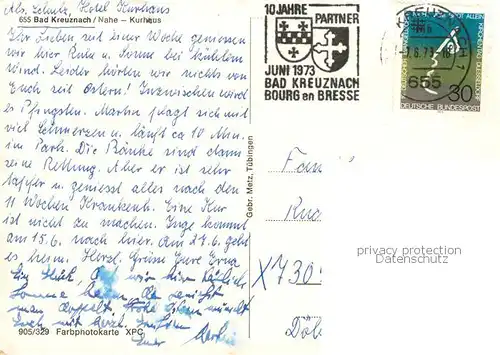 Abs. Schulz, Hotel Kurhaus
655 Bad Kreuznach / Nahe – Kurhaus
Ihr Lieben seit einer Woche geniessen
wir hier Ruhe u. Sonne bei kühlem
Wind. Leider hörten wir nichts von
Euch seit Ostern! Inzwischen wird
es Pfingsten. Martin plagt sich mit
viel Schmerzen u. läuft ca 10 Min.
im Park. Die Bänke sind dann
seine Rettung. Aber er ist sehr
tapfer u. geniesst alles nach den
11 Wochen Krankenh. Eine Kur
ist nicht zu machen. Inge kommt
am 15.6. nach hier. Am 27.6. geht
es heim. Herzl. Grüsse Eure Erna
wir hier
Sonne
man doppelt. Frohe
Euch mit herzl. Grüßen
Euer
905/329 Farbphotokarte XPC
Gebr. Metz, Tübingen
10 JAHRE PARTNER
JUNI 1973
BAD KREUZNACH
BOURG en BRESSE
KREUZNACH
655
30
DEUTSCHE BUNDESPOST
Fam
X 730
Döb
privacy protection
Datenschutz